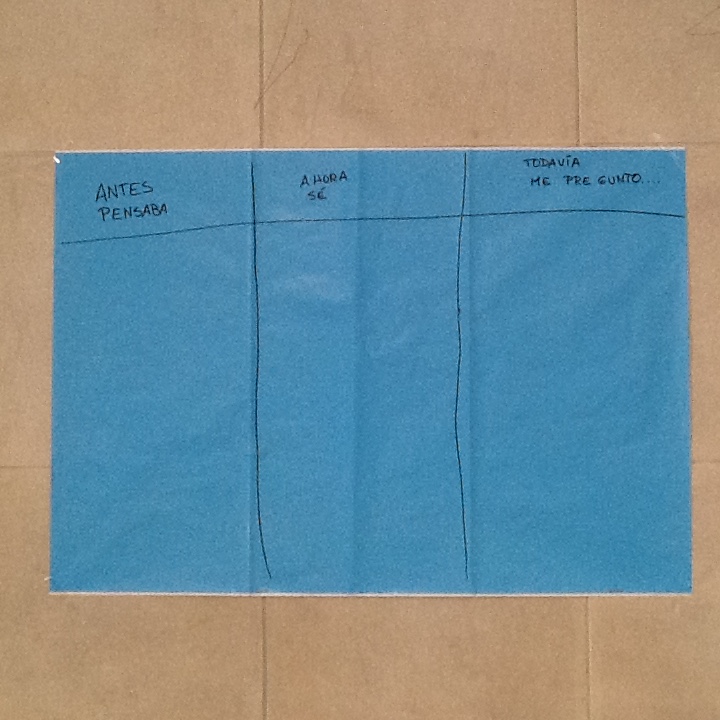 ANTES
PENSABA
AHORA
SÉ
TODAVÍA
ME PREGUNTO....